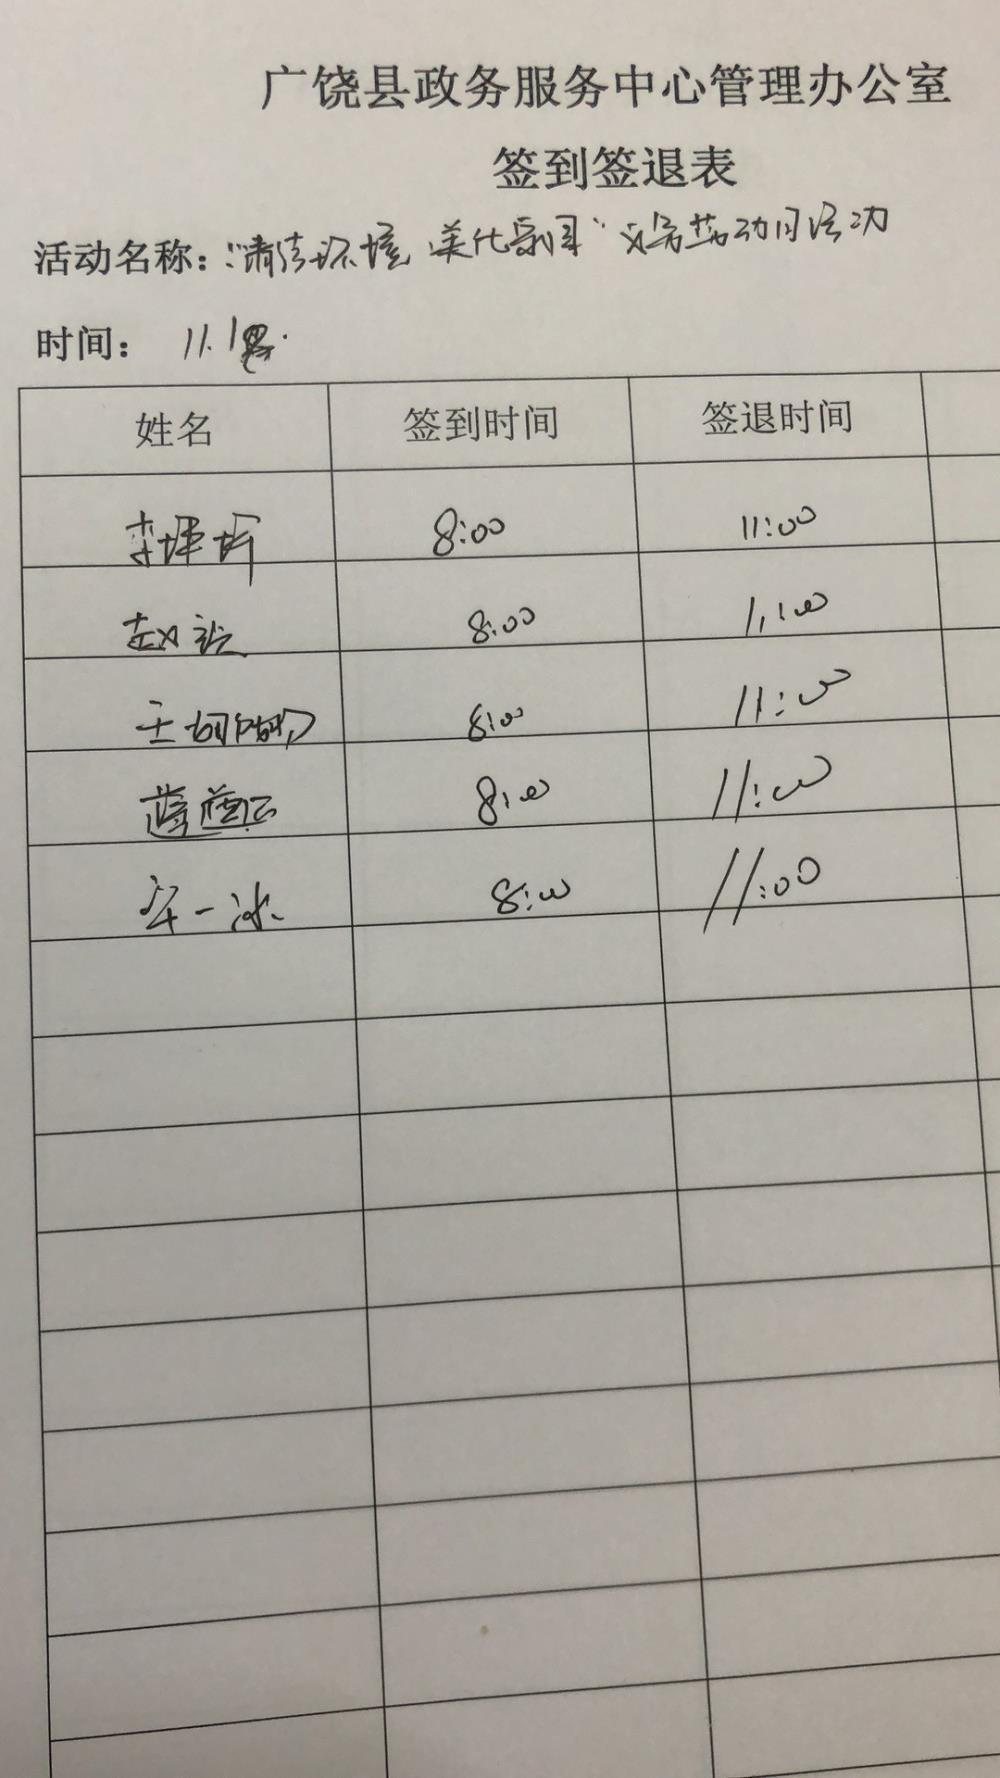 广饶县政务服务中心管理办公室
签到签退表
活动名称：“清洁环境 美化家园”义务劳动日活动
时间： 11.1
姓名 签到时间 签退时间
李坪坪 8:00 11:00
赵 8:00 11:00
王 8:00 11:00
8:00 11:00
一冰 8:00 11:00